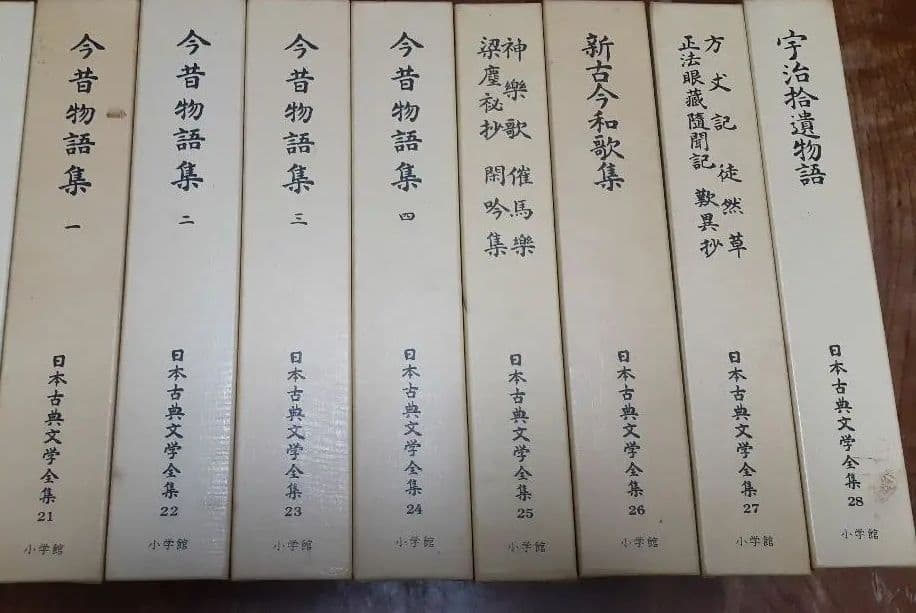 今昔物語集 一
日本古典文学全集 21
小学館
今昔物語集 二
日本古典文学全集 22
小学館
今昔物語集 三
日本古典文学全集 23
小学館
今昔物語集 四
日本古典文学全集 24
小学館
神樂歌 催馬樂
梁塵秘抄 閑吟集
日本古典文学全集 25
小学館
新古今和歌集
日本古典文学全集 26
小学館
方丈記 徒然草
正法眼藏隨聞記 歎異抄
日本古典文学全集 27
小学館
宇治拾遺物語
日本古典文学全集 28
小学館